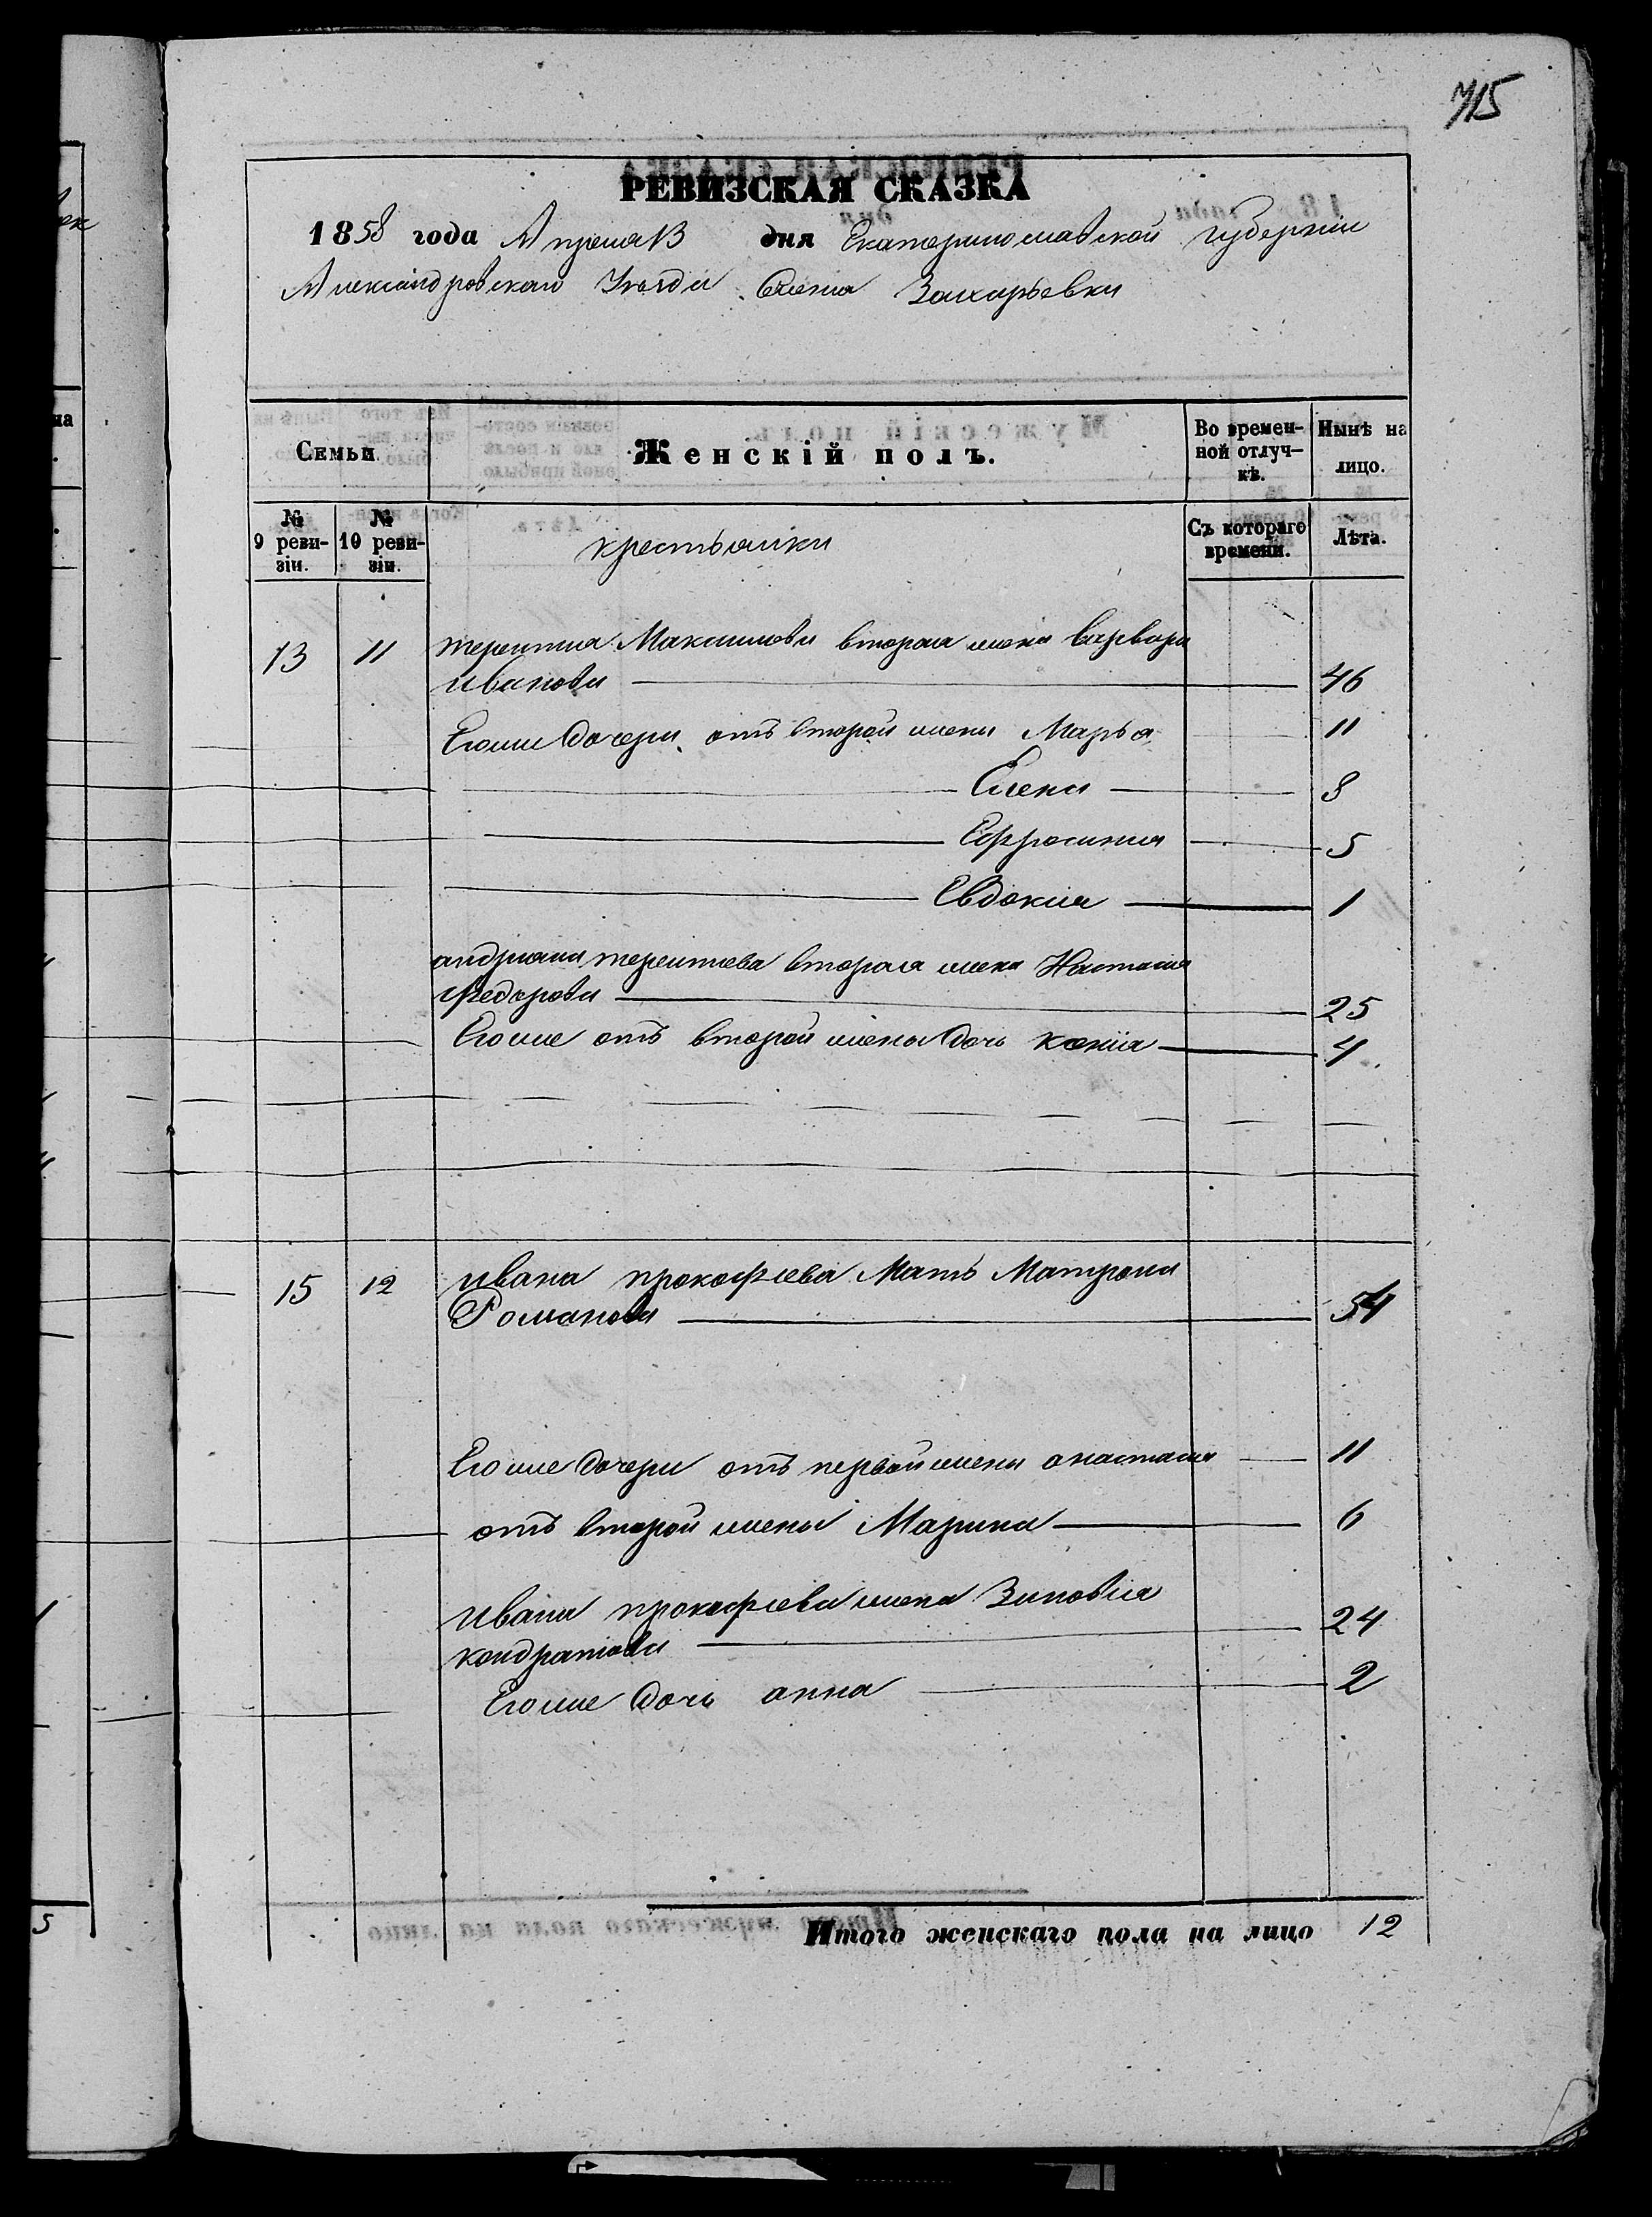 715
РЕВИЗСКАЯ СКАЗКА
1858 года Апреля 13 дня Екатеринославской Губернии
Александровскаго Уезда Селения Захарьевки
Семьи
Женскій полъ.
Во времен-
ной отлуч-
кѣ.
Нынѣ на
лицо.
№
9 реви-
зіи.
№
10 реви-
зіи.
крестьянки
Съ котораго
времени.
Лѣта.
13 11 терентия Максимова вторая жена варвара
иванова 46
Егоже дочери отъ второй жены Марья 11
Елена 8
Ефросиния 5
Евдокия 1
андриана терентиева вторая жена Настасия
Федорова 25
Егоже отъ второй жены дочь ксения 4
15 12 ивана прокофиева Мать Матрона
Романова 54
Егоже дочери отъ первой жены анастасия 11
отъ второй жены Марина 6
ивана прокофиева жена Зиновия
кондратова 24
Егоже дочь анна 2
Итого женскаго пола на лицо 12